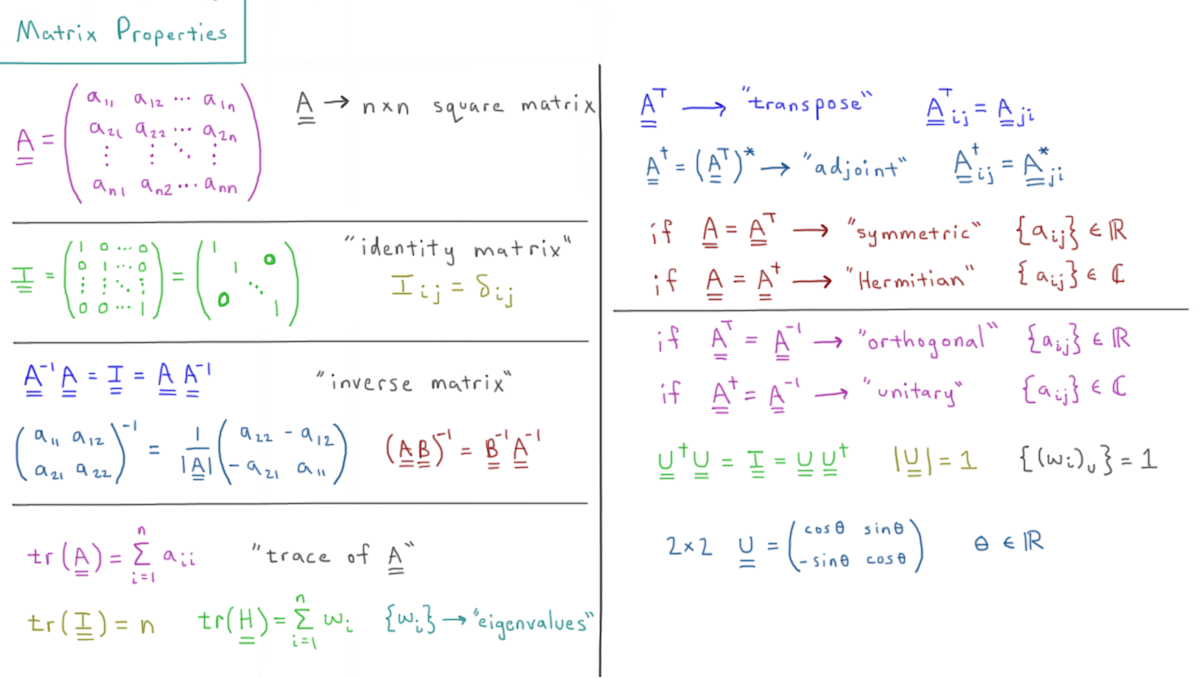 Matrix Properties
A = ( a₁₁ a₁₂ ⋯ a₁ₙ
a₂₁ a₂₂ ⋯ a₂ₙ
⋮ ⋮ ⋱ ⋮
aₙ₁ aₙ₂ ⋯ aₙₙ )
A → n×n square matrix
I = ( 1 0 ⋯ 0
0 1 ⋯ 0
⋮ ⋮ ⋱ ⋮
0 0 ⋯ 1 ) = ( 1
1 0
0 ⋱
1 )
"identity matrix"
I_ij = δ_ij
A⁻¹A = I = A A⁻¹ "inverse matrix"
( a₁₁ a₁₂
a₂₁ a₂₂ )⁻¹ = 1/|A| ( a₂₂ -a₁₂
-a₂₁ a₁₁ ) (AB)⁻¹ = B⁻¹A⁻¹
tr(A) = Σ_{i=1}^{n} a_ii "trace of A"
tr(I) = n tr(H) = Σ_{i=1}^{n} ω_i {ω_i} → "eigenvalues"
Aᵀ → "transpose" Aᵀ_ij = A_ji
A† = (Aᵀ)* → "adjoint" A†_ij = A*_ji
if A = Aᵀ → "symmetric" {a_ij} ∈ ℝ
if A = A† → "Hermitian" {a_ij} ∈ ℂ
if Aᵀ = A⁻¹ → "orthogonal" {a_ij} ∈ ℝ
if A† = A⁻¹ → "unitary" {a_ij} ∈ ℂ
U†U = I = U U† |U| = 1 {(ω_i)_U} = 1
2×2 U = ( cosθ sinθ
-sinθ cosθ ) θ ∈ ℝ